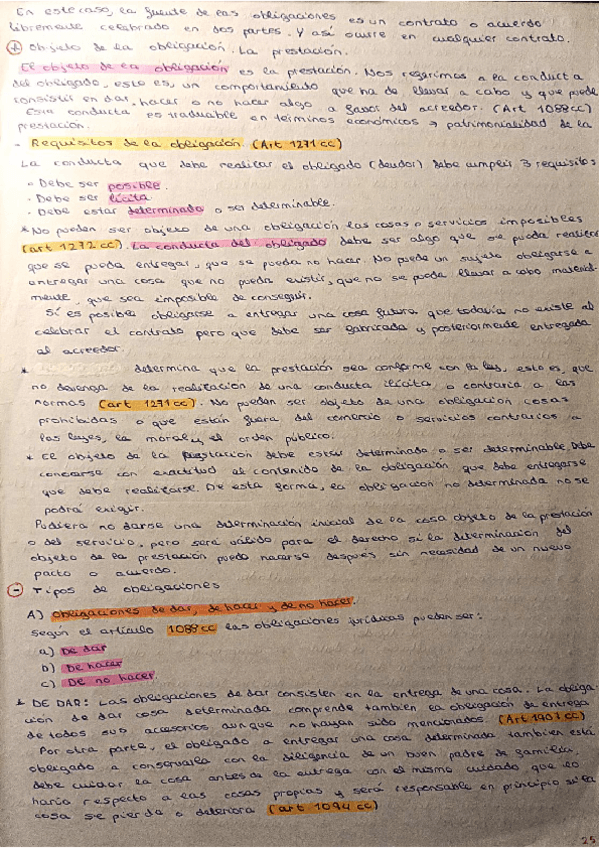 En este caso, la fuente de las obligaciones es un contrato o acuerdo
libremente celebrado en dos partes. Y así ocurre en cualquier contrato.
Objeto de la obligación. La prestación.
El objeto de la obligación es la prestación. Nos referimos a la conducta
del obligado, esto es, un comportamiento que ha de llevar a cabo y que puede
consistir en dar, hacer o no hacer algo a favor del acreedor. (Art 1088cc)
Esta conducta es traducible en términos económicos → patrimonialidad de la
prestación.
- Requisitos de la obligación (Art 1271 cc)
La conducta que debe realizar el obligado (deudor) debe cumplir 3 requisitos
- Debe ser posible.
- Debe ser lícita
- Debe estar determinada o ser determinable.
* No pueden ser objeto de una obligación las cosas o servicios imposibles
(art 1272 cc). La conducta del obligado debe ser algo que se pueda realizar
que se pueda entregar, que se pueda no hacer. No puede un sujeto obligarse a
entregar una cosa que no pueda existir, que no se pueda llevar a cabo material-
mente, que sea imposible de conseguir.
Sí es posible obligarse a entregar una cosa futura que todavía no existe al
celebrar el contrato pero que debe ser fabricada y posteriormente entregada
al acreedor.
* determina que la prestación sea conforme con la ley, esto es, que
no devenga de la realización de una conducta ilícita o contraria a las
normas (art 1271 cc). No pueden ser objeto de una obligación cosas
prohibidas o que están fuera del comercio o servicios contrarios a
las leyes, la moral y el orden público.
* El objeto de la prestación debe estar determinado o ser determinable. Debe
conocerse con exactitud el contenido de la obligación que debe entregarse
que debe realizarse. De esta forma, la obligación no determinada no se
podrá exigir.
Pudiera no darse una determinación inicial de la cosa objeto de la prestación
o del servicio, pero será válido para el derecho si la determinación del
objeto de la prestación puede hacerse después sin necesidad de un nuevo
pacto o acuerdo.
- Tipos de obligaciones
A) Obligaciones de dar, de hacer y de no hacer.
Según el artículo 1088cc las obligaciones jurídicas pueden ser:
a) De dar
b) De hacer
c) De no hacer.
* DE DAR: Las obligaciones de dar consisten en la entrega de una cosa. La obliga-
ción de dar cosa determinada comprende también la obligación de entrega
de todos sus accesorios aunque no hayan sido mencionados. (Art 1907 cc)
Por otra parte, el obligado a entregar una cosa determinada también está
obligado a conservarla con la diligencia de un buen padre de familia.
debe cuidar la cosa antes de la entrega con el mismo cuidado que lo
haría respecto a las cosas propias y será responsable en principio si la
cosa se pierde o deteriora (art 1094 cc)
25